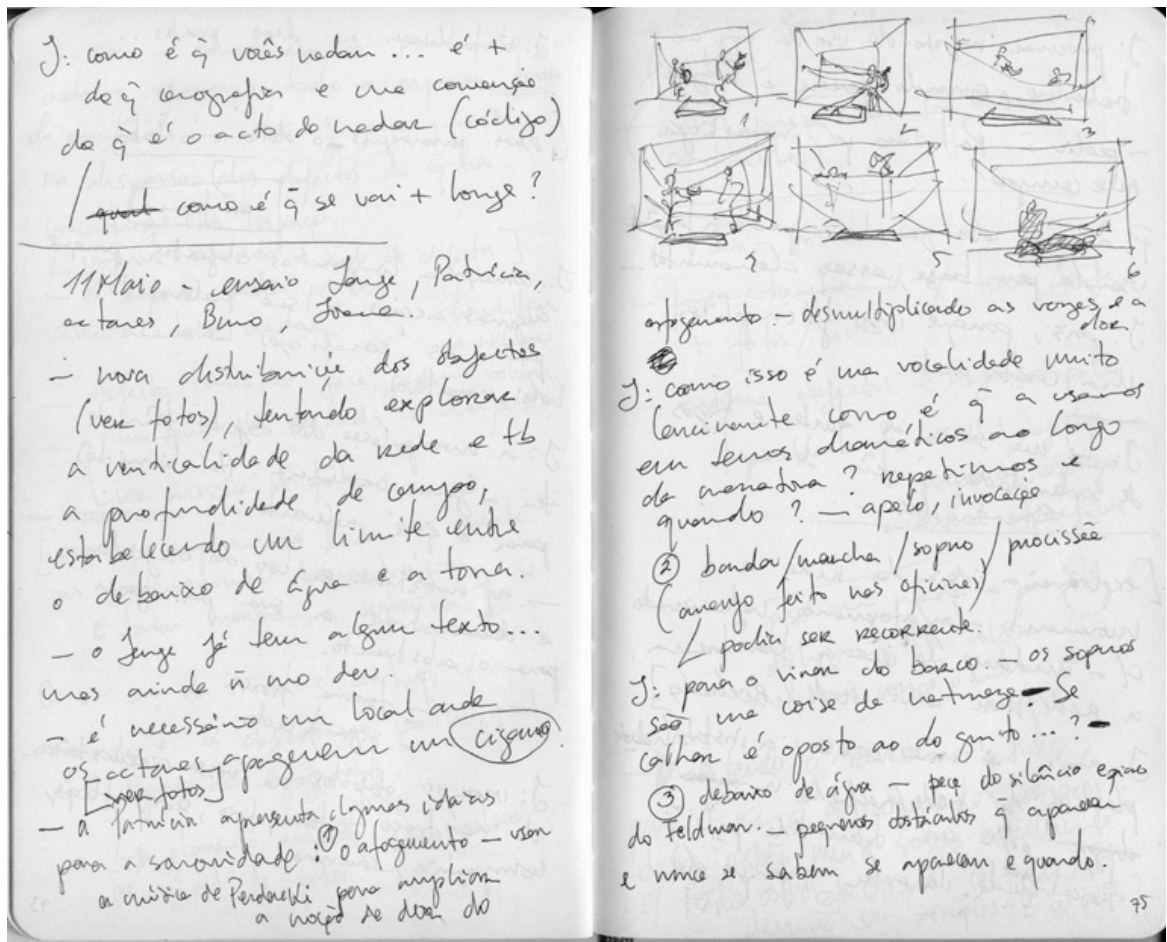 J: como é q̃ vocês nadam... é +
do q̃ coreografia e uma convenção
do q̃ é o acto de nadar (código)
/ quál como é q̃ se vai + longe?
11 Maio - ensaio Jorge, Patrícia,
actores, Bruno, Joana
- nova distribuição dos objectos
(ver fotos), tentando explorar
a verticalidade da rede e tb
a profundidade de campo,
estabelecendo um limite entre
o debaixo de água e a tona.
- o Jorge já tem algum texto...
mas ainda ñ mo deu.
- é necessário um local onde
os actores apaguem um cigarro.
[ver fotos]
- a Patrícia apresenta algumas ideias
para a sonoridade: ① o afogamento - usar
a música de Penderecki para ampliar
a noção de dor do
1
2
3
5
6
afogamento - desmultiplicando as vozes e a
dor
J: como isso é uma vocalidade muito
lancinante como é q̃ a usamos
em termos dramáticos ao longo
da narrativa? repetimos e
quando? - apelo, invocação
② banda/marcha/sopro/procissão
(arranjo feito nas oficinas)
podia ser recorrente.
J: para o virar do barco - os sopros
são uma coisa de natureza - Se
calhar é oposto ao do grito...? -
③ debaixo de água - peça do silêncio
do Feldman. - pequenos obstáculos q̃ aparecem
e nunca se sabem se aparecem e quando.
75